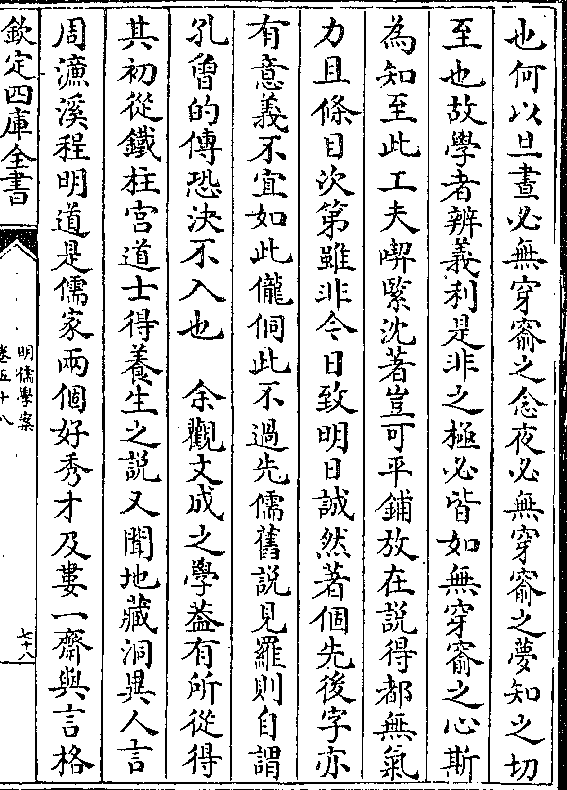 也何以旦晝必無穿窬之念夜必無穿窬之夢知之切
至也故學者辨義利是非之極必皆如無穿窬之心斯
為知至此工夫喫緊沈著豈可平鋪放在說得都無氣
力且條目次第雖非今日致明日誠然著個先後字亦
有意義不宜如此儱侗此不過先儒舊說見羅則自謂
孔曾的傳恐決不入也　余觀文成之學葢有所從得
其初從鐵柱宮道士得養生之說又聞地藏洞異人言
周濂溪程明道是儒家兩個好秀才及婁一齋與言格
欽定四庫全書
明儒學案
卷五十八
七十八